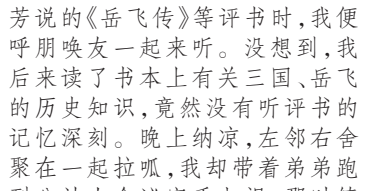 芳说的《岳飞传》等评书时，我便
呼朋唤友一起来听。没想到，我
后来读了书本上有关三国、岳飞
的历史知识，竟然没有听评书的
记忆深刻。晚上纳凉，左邻右舍
聚在一起拉呱，我却带着弟弟跑